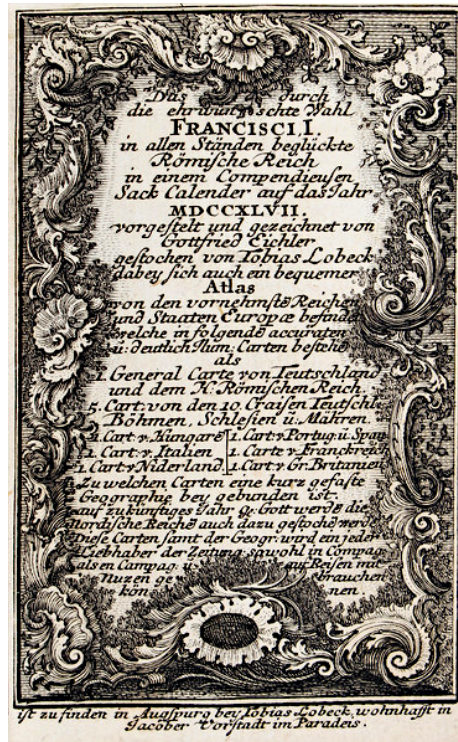 Das durch
die ehrwünschte Wahl
FRANCISCI I.
in allen Ständen beglückte
Römische Reich
in einem Compendieusen
Sack Calender auf das Jahr
MDCCXLVII.
vorgestelt und gezeichnet von
Gottfried Eichler
gestochen von Tobias Lobeck
dabey sich auch ein bequemer
Atlas
von den vornehmstē Reichen
und Staaten Europæ befindet
welche in folgendē accuraten
u: deutlich Illum: Carten bestehē
als
1. General Carte von Teutschland
und dem H. Römischen Reich
5. Cart: von den 10. Craisen Teutschl:
Böhmen, Schlesien ü. Mähren.
1. Cart v. Hungarē 1. Cart v. Portug: ü. Span
1. Cart. v. Italien 1. Carte v. Franckreich
1. Cart v. Niderland. 1. Cart v. Gr. Britanien
Zu welchen Carten eine kurz gefaste
Geographie bey gebunden ist.
auf zukünftiges Jahr G: Gott werdē die
Nordische Reichē auch dazu gestochē werdē
Diese Carten samt der Geogr: wird ein jeder
Liebhaber der Zeitung sowohl in Compag:
als en Campag: u: auf Reisen mit
Nuzen ge brauchen
kön nen.
ist zu finden in Augspurg bey Tobias Lobeck, wohnhafft in
Jacober Vorstadt im Paradeis.